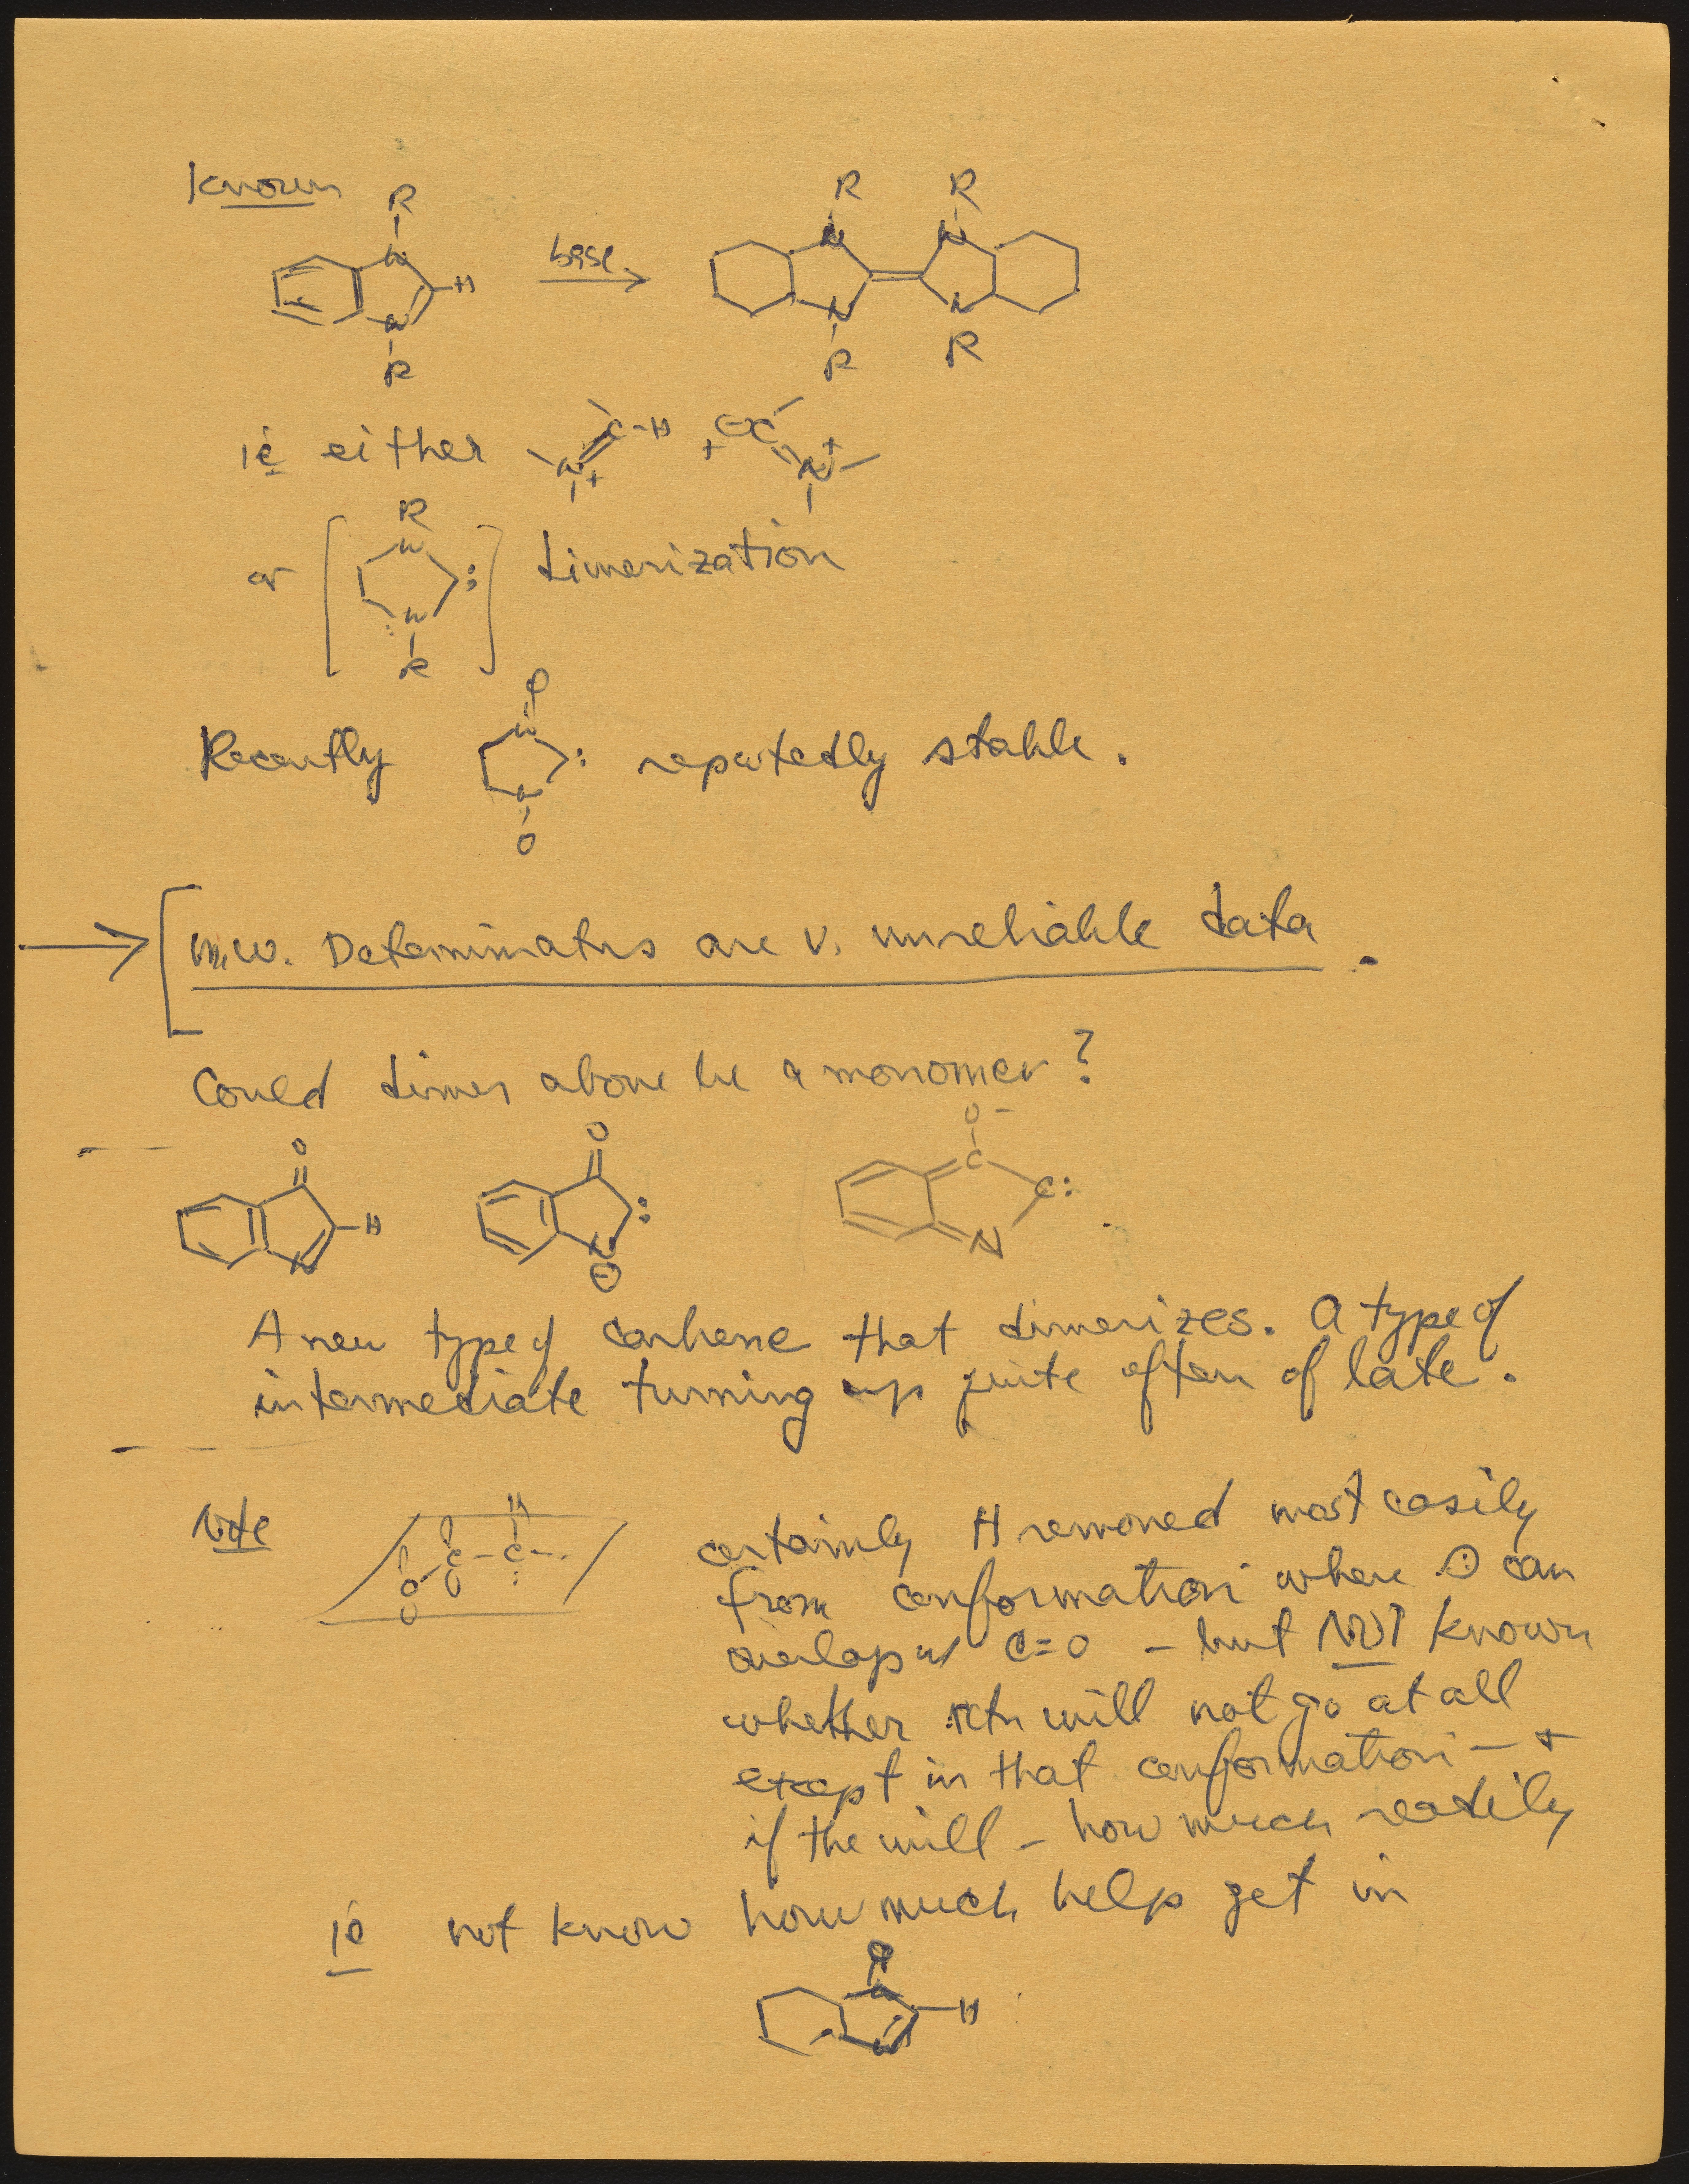 Known
R
R
R
N
N
N
H
base
N
N
N
R
R
R
ie either
C-H
N+
+
C
N+
R
or
N
:
dimerization
N
R
Recently
N
:
reputedly stable.
N
m.w. Determinatns are v. unreliable data.
Could dimer above be a monomer?
O
O
O-
C
H
:
C:
N
N
N
⊖
A new type of carbene that dimerizes. A type of
intermediate turning up quite often of late.
Note
H
C-C-
O
certainly H removed most easily
from conformation where ⊖ can
overlap w/ C=O - but NOT known
whether rctn will not go at all
except in that conformation - +
if the will - how much readily
ie not know how much help get in
H